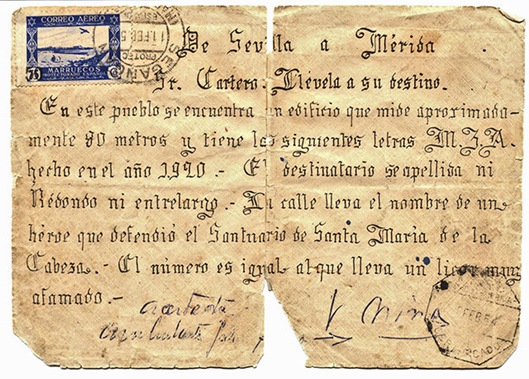 CORREO AEREO
75
MARRUECOS
PROTECTORADO ESPAÑOL
De Sevilla a Mérida
Sr. Cartero. Llevela a su destino.
En este pueblo se encuentra un edificio que mide aproximada-
mente 80 metros y tiene las siguientes letras M.Z.A.
hecho en el año 1920.- El destinatario se apellida ni
Redondo ni entrelargo.- Su calle lleva el nombre de un
héroe que defendió el Santuario de Santa Maria de la
Cabeza.- El número es igual al que lleva un licor muy
afamado.-